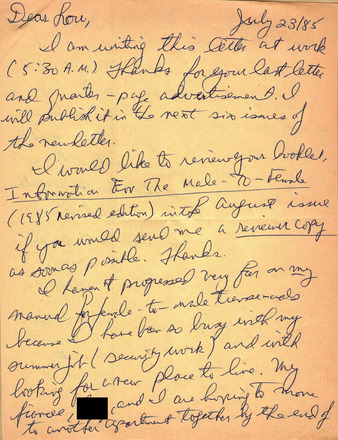 Dear Lou,
July 23/85
I am writing this letter at work
(5:30 A.M.) Thanks for your last letter
and quarter-page advertisement. I
will publish it in the next six issues of
the newsletter.
I would like to review your booklet,
Information For The Male-To-Female
(1985 revised edition) in the August issue
if you would send me a reviewer copy
as soon as possible. Thanks.
I haven't progressed very far on my
manual for female-to-male
because I have been so busy with my
summer job (security work) and with
looking for a new place to live. My
fiancee, and I are hoping to move
to another apartment together by the end of